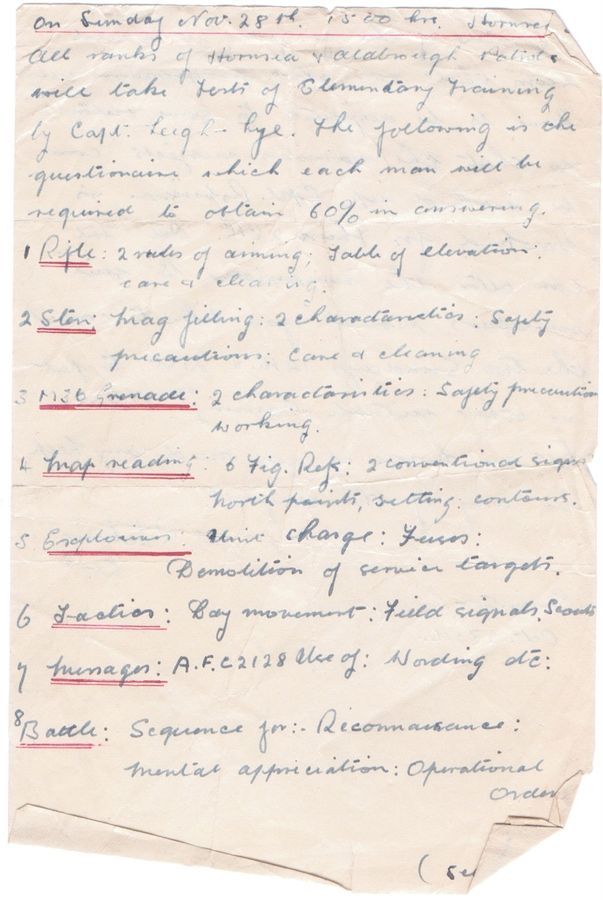 On Sunday Nov. 28th. 1500 hrs. Hornsea
All ranks of Hornsea & Aldbrough Patrols
will take Tests of Elementary Training
by Capt. Leigh-Lye. The following is the
questionaire which each man will be
required to obtain 60% in answering.
1 Rifle: 2 rules of aiming; Table of elevation:
care & cleaning:
2 Sten: Mag filling: 2 charactaristics: Safety
precautions: Care & cleaning
3 M36 Grenade: 2 charactaristics: Safety precaution
working.
4 Map reading: 6 Fig. Refs: 2 conventional signs
North points, setting: contours.
5 Explosives: Unit charge: Fuses:
Demolition of service targets.
6 Tactics: Day movement: Field signals, Scouts
7 Messages: A.F.C2128 Use of: Wording etc:
8 Battle: Sequence for:- Reconnaisance:
mental appreciation: Operational
Order
(